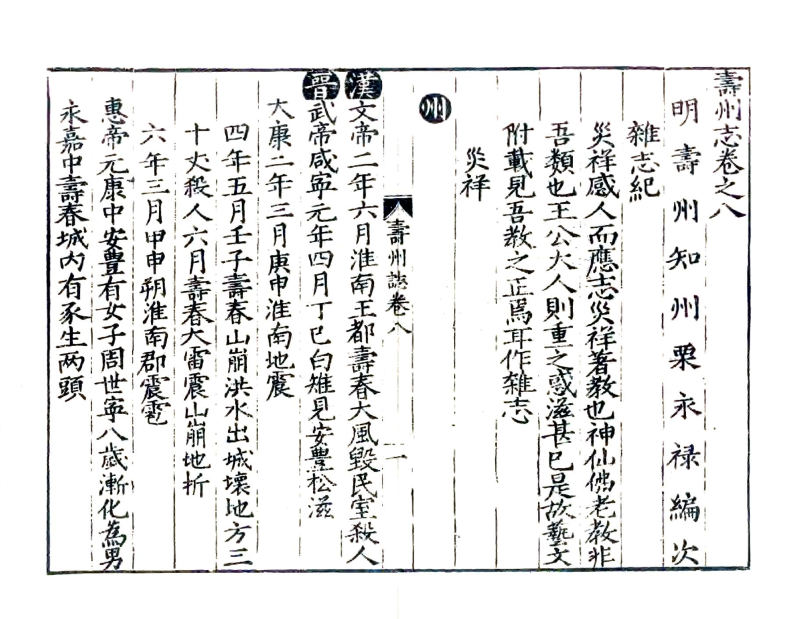 壽州志卷之八
明壽州知州栗永祿編次
雜志紀
災祥感人而應志災祥著教也神仙佛老教非
吾類也王公大人則重之惑滋甚巳是故藝文
附載見吾教之正焉耳作雜志
災祥
州
壽州誌卷八
一
漢文帝二年六月淮南王都壽春大風毀民室殺人
晉武帝咸寧元年四月丁巳白雉見安豊松滋
大康二年三月庚申淮南地震
四年五月壬子壽春山崩洪水出城壞地方三
十丈殺人六月壽春大雷震山崩地折
六年三月甲申朔淮南郡震雹
惠帝元康中安豊有女子周世寧八歲漸化為男
永嘉中壽春城內有豕生两頭